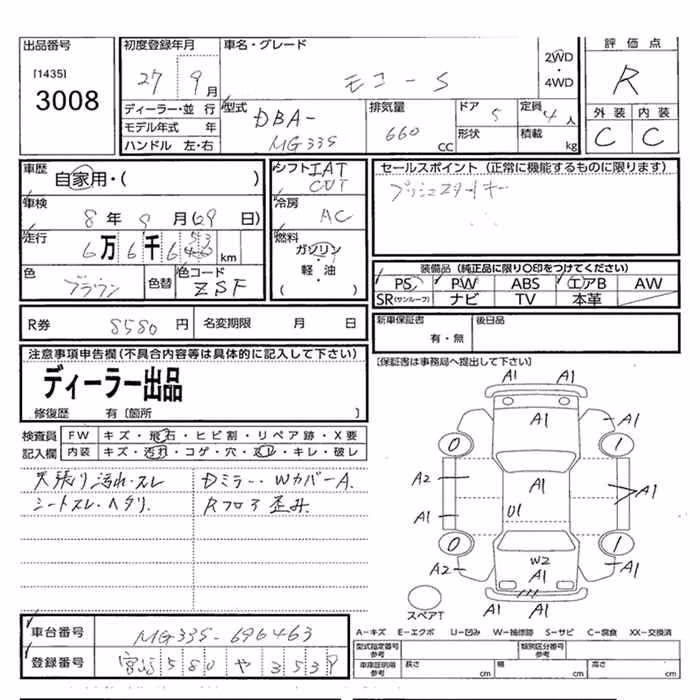 出品番号
[1435]
3008
初度登録年月
27 9月
ディーラー・並行
モデル年式 年
ハンドル 左・右
車名・グレード
モコ-S
2WD
・
4WD
型式
DBA-
MG33S
排気量
660 CC
ドア 5
形状
定員 4人
積載 kg
評価点
R
外装 内装
C C
車歴
自家用・( )
車検
8年9月(29日)
走行
6万6千6 km
色 ブラウン 色替 色コード
シフト IAT
CVT
冷房
AC
燃料
ガソリン
・
軽・油
( )
セールスポイント (正常に機能するものに限ります)
プッシュスタートキー
装備品 (純正品に限り〇印をつけてください)
PS PW ABS エアB AW
SR(サンルーフ) ナビ TV 本革
R券 8580円 名変期限 月 日
新車保証書 後日品
有・無
[保証書は事務局へ提出して下さい]
注意事項申告欄(不具合内容等は具体的に記入して下さい)
ディーラー出品
修復歴 有〔箇所 〕
検査員 FW キズ・飛石・ヒビ割・リペア跡・X要
記入欄 内装 キズ・汚れ・コゲ・穴・スレ・キレ・破レ
天張り汚れ・スレ Dミラー・WカバーA.
シートスレ・ヘタリ. Rフロア歪み.
A1 A1
A1 A1
0 1
A2 A1 A1
A1 U1
0 1
W2
A2 A1 A1
A1
スペアT
車台番号 MG33S-696463
登録番号 宮崎 580 や 353
A-キズ E-エクボ U-凹み W-補修跡 S-サビ C-腐食 XX-交換済
型式指定番号
参考
類別区分番号
参考
車庫証明用
参考
長さ cm 幅 cm 高さ cm